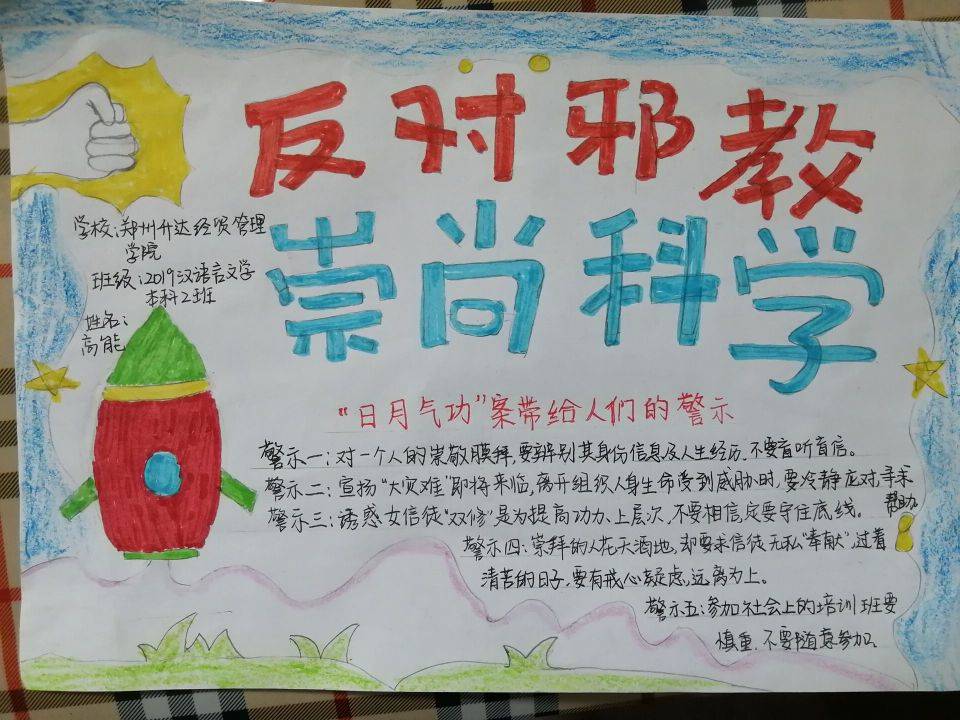 反对邪教
崇尚科学
学校：郑州升达经贸管理
学院
班级：2019汉语言文学
本科2班
姓名：
高能
“日月气功”案带给人们的警示
警示一：对一个人的崇敬膜拜，要辨别其身份信息及人生经历，不要盲听盲信。
警示二：宣扬“大灾难”即将来临，离开组织人身生命受到威胁时，要冷静应对，寻求
帮助。
警示三：诱惑女信徒“双修”是为提高功力、上层次，不要相信，一定要守住底线。
警示四：崇拜的人花天酒地，却要求信徒无私“奉献”，过着
清苦的日子，要有戒心疑虑，远离为上。
警示五：参加社会上的培训班要
慎重，不要随意参加。